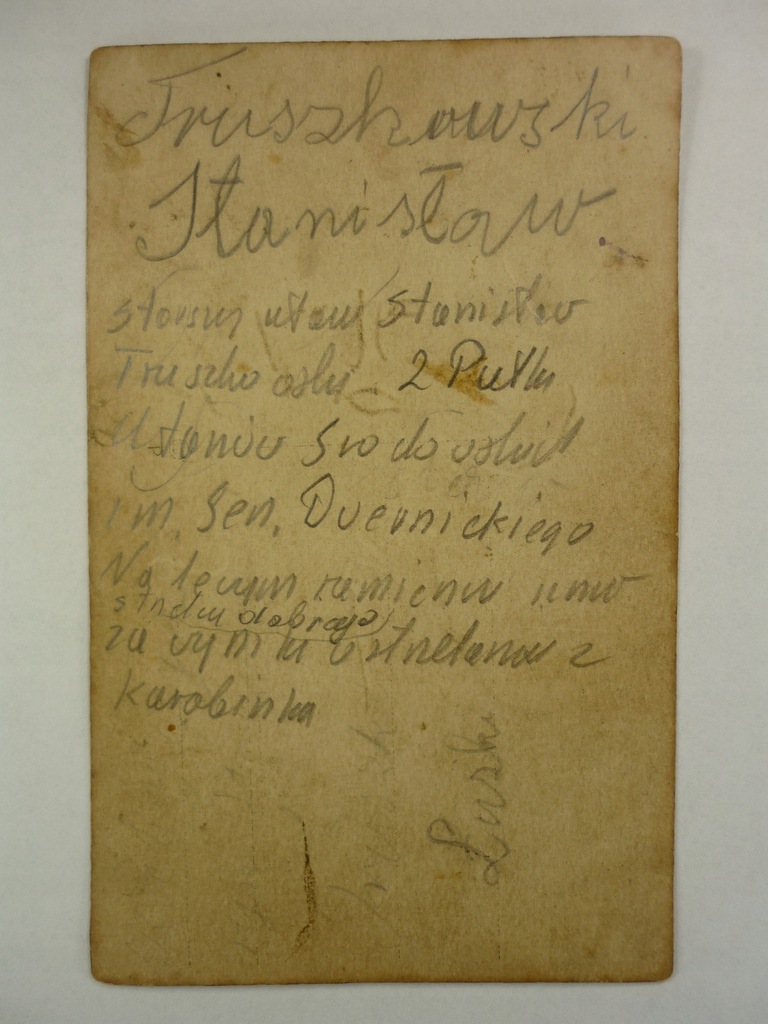 Truszkowski
Stanisław
starszy ułan Stanisław
Truszkowski 2 Pułku
Ułanów Grochowskich
im. Gen. Dwernickiego
Na lewym ramieniu
strzelca dobrego
za wyniki w strzelaniu z
karabinka